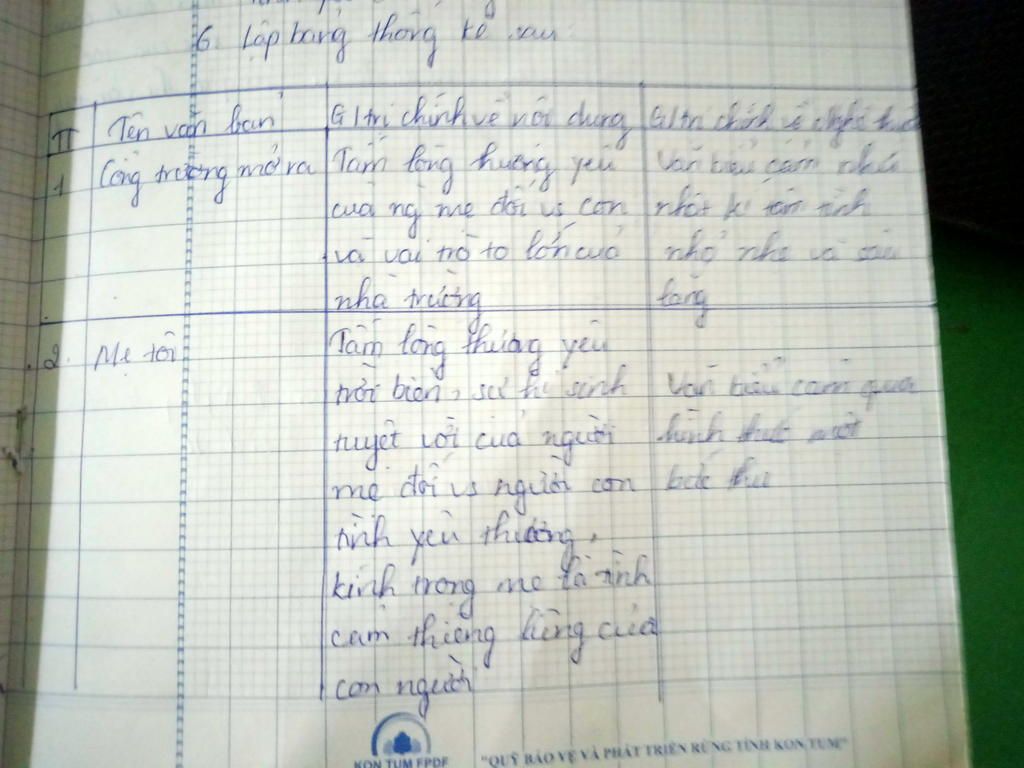 6. Lập bảng thống kê sau:
TT Tên văn bản G/trị chính về nội dung G/trị chính về nghệ thuật
1 Cổng trường mở ra Tấm lòng thương yêu Văn biểu cảm như
của ng mẹ đối vs con nhật kí tâm tình
và vai trò to lớn của nhỏ nhẹ và sâu
nhà trường lắng
2. Mẹ tôi Tấm lòng thương yêu
trời biển, sự hi sinh Văn biểu cảm qua
tuyệt vời của người hình thức một
mẹ đối vs người con bức thư
tình yêu thương,
kính trọng mẹ là tình
cảm thiêng liêng của
con người
KON TUM FPDF "QUỸ BẢO VỆ VÀ PHÁT TRIỂN RỪNG TỈNH KON TUM"